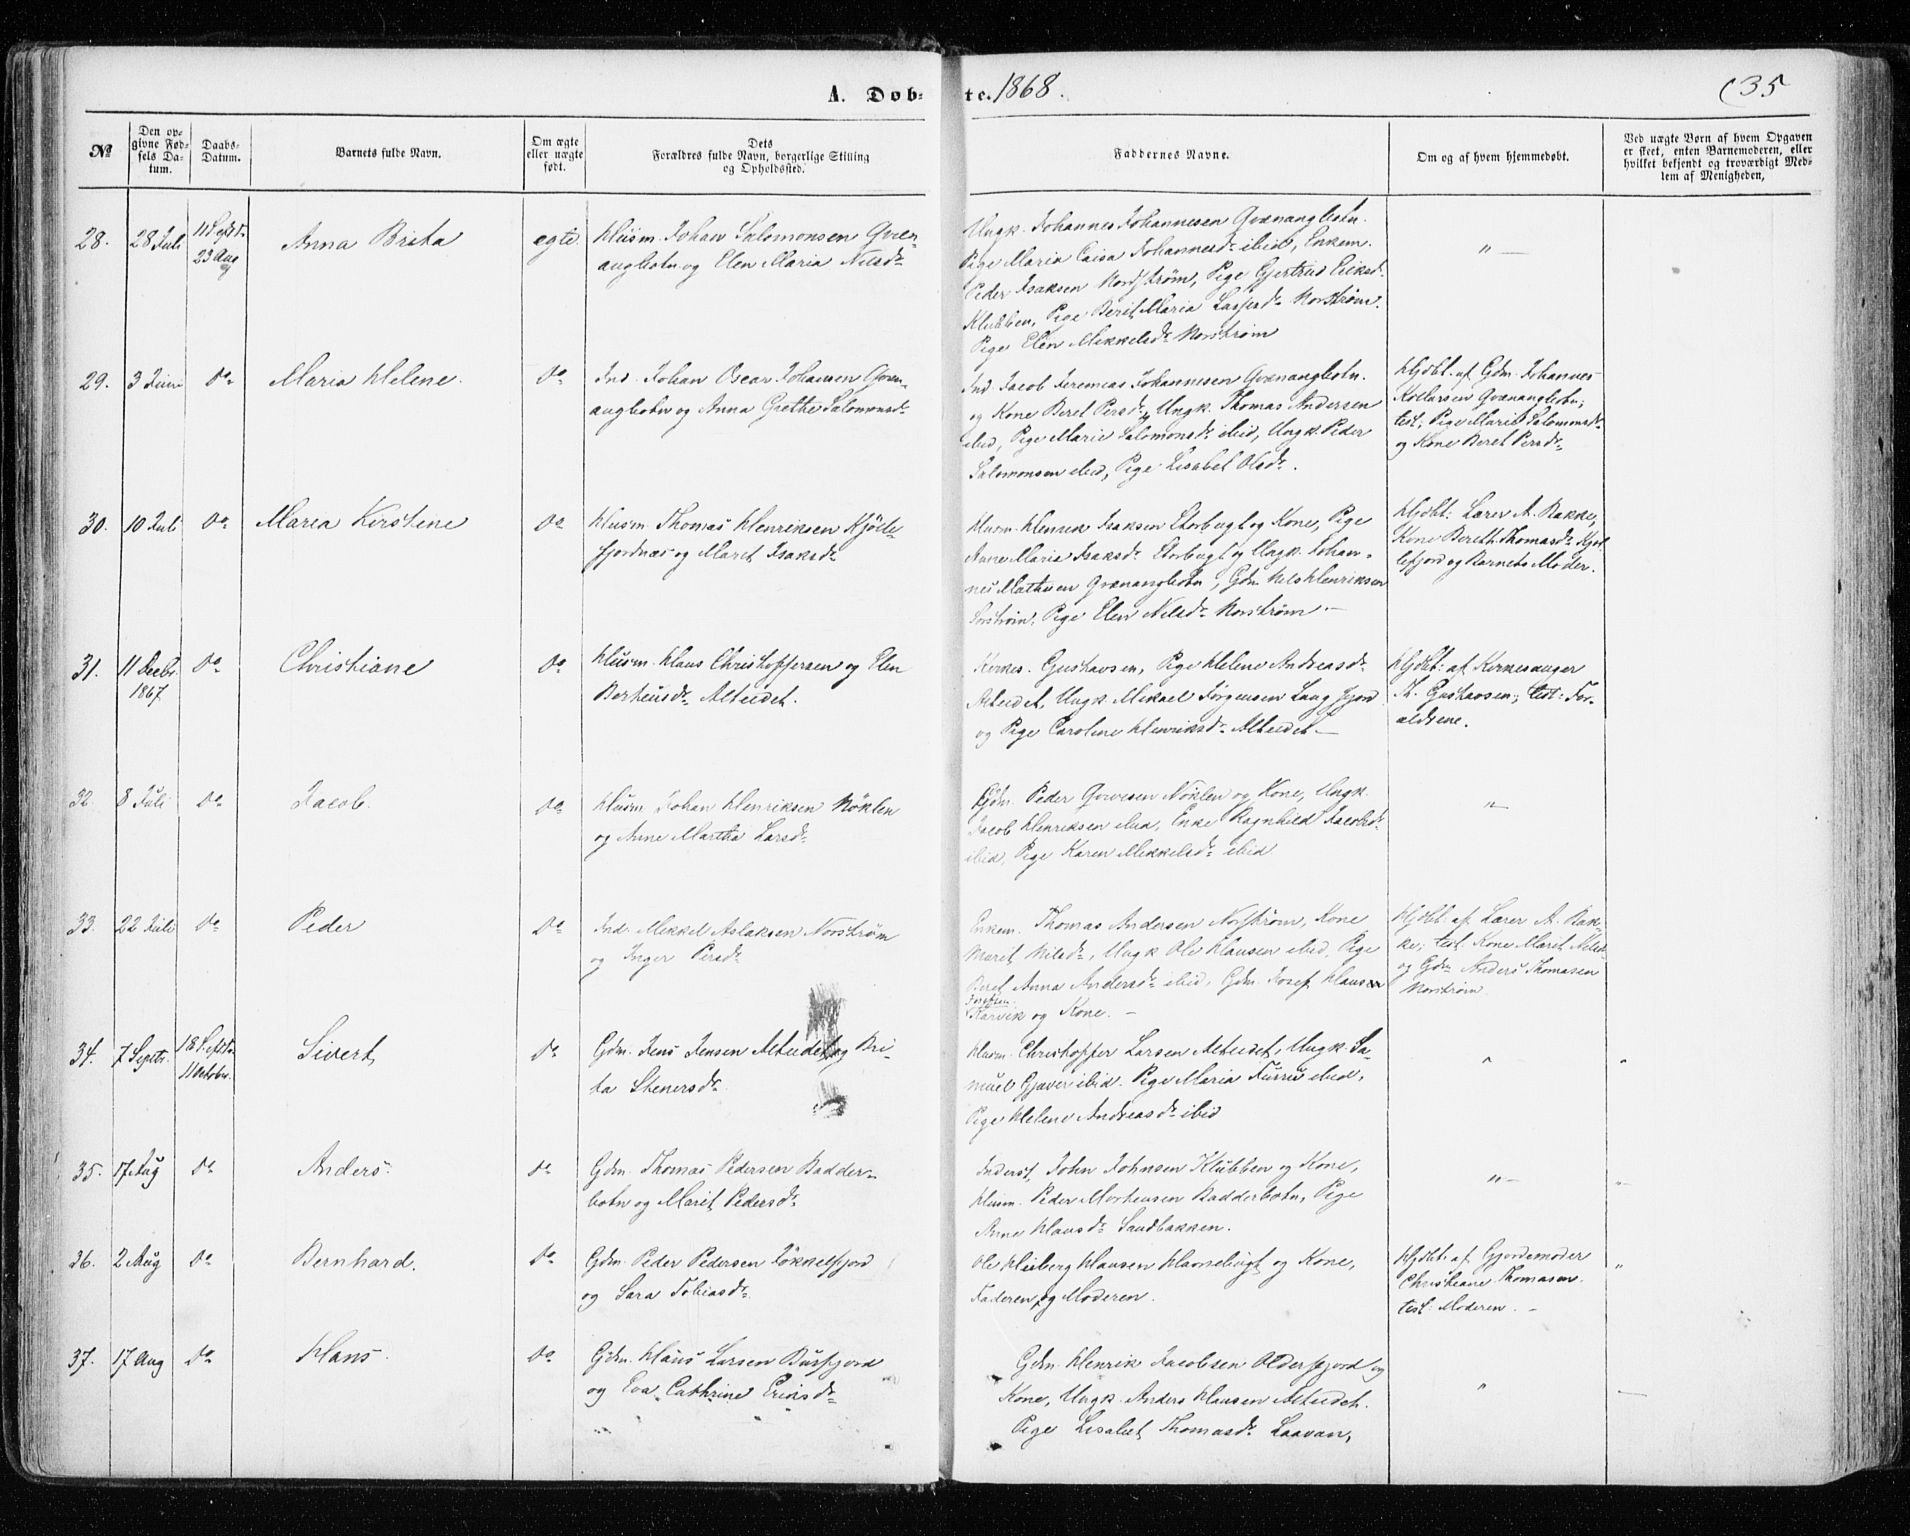 A. Døb-te. 1868. 35
№
Den op-
givne Fød-
sels Da-
tum.
Daabs-
Datum.
Barnets fulde Navn.
Om ægte
eller uægte
født.
Dets
Forældres fulde Navn, borgerlige Stilling
og Opholdssted.
Faddernes Navne.
Om og af hvem hjemmedøbt.
Ved uægte Børn af hvem Opgaven
er skeet, enten Barnemoderen, eller
hvilket bekjendt og troværdigt Med-
lem af Menigheden,
28. 28 Juli
23 Aug
Anna Brita
egte
Husm. Johan Salomonsen Qvæn-
angbotn og Elen Maria Nilsdr
Ungk. Johannes Johannesen Qvænangbotn.
Pige Maria Caisa Johannesdr ibid, Enkem.
Peder Isaksen Nordstrøm, Pige Gjertrud Eriksdr
Klubben, Pige Berit Maria Lassesdr Norstrøm.
Pige Elen Mikkelsdr Norstrøm
"
29. 3 Juni Do
Maria Helene.
Do
Ind. Johan Oscar Johansen Qvæn-
angbotn og Anna Grethe Salomonsdr
Ind. Jacob Jeremias Johannesen Qvænangbotn.
og Kone Beret Persdr, Ungk. Thomas Andersen
ibid, Pige Marie Salomonsdr ibid, Ungk. Peder
Salomonsen ibid, Pige Lisabet Olsdr.
Hjdbt. af Gdm. Johannes
Qvænangbotn;
test: Pige Marie Salomonsdr
og Kone Beret Persdr
30. 10 Juli Do
Maria Kirstine
Do
Husm. Thomas Henriksen Kjøle-
fjordnæs og Maret Isaksdr
Husm. Henrik Isaksen Storbugt og Kone, Pige
Anne Maria Isaksdr Storbugt og Ungk. Johan-
nes Mathisen Qvænangbotn, Gdm Nils Henriksen
Sørstrøm, Pige Elen Nilsdr Norstrøm.
Hjdbt: Lærer A. Bakke,
Kone Bereth Thomasdr Kjøl-
lefjord og Barnets Moder.
31. 11 Decbr
1867
Do
Christiane
Do
Husm. Hans Christophersen og Elen
Alteidet.
Gustavsen, Pige Helene Andreasdr
Alteidet, Ungk. Mikael Jørgensen Langfjord
og Pige Caroline Henriksdr Alteidet
Hjdbt: af Kirkesanger
Gustavsen; test: For-
ældrene.
32. 8 Juli Do
Jacob.
Do
Husm. Johan Henriksen Nöklen
og Anne Martha Larsdr
Gdm. Peder Nöklen og Kone, Ungk.
Jacob Henriksen ibid, Enke Ragnhild Jacobsdr
ibid, Pige Karen Mikkelsdr ibid
"
33. 22 Juli Do
Peder
Do
Ind. Mikkel Aslaksen Norstrøm
og Inger Persdr
Enkem. Thomas Andersen Norstrøm, Kone
Marit Nilsdr, Ungk Ole Hansen ibid, Pige
Beret Anna Andersdr ibid, Gdm. Josef Hansen
Karvik og Kone.
Hjdbt. af Lærer A. Bak-
ke; test. Kone Maret Nilsdr
og Gdm Anders Thomasen
Norstrøm.
34. 7 Septr. 18 Septr
11 October.
Sivert
Do
Gdm. Jens Jensen Alteidet og Bri-
ta Stenersdr
Husm. Christopher Larsen Alteidet, Ungk. Sa-
muel Gjæver ibid. Pige Maria ibid,
Pige Helene Andreasdr ibid
"
"
35. 17 Aug Do
Anders.
Do
Gdm. Thomas Pedersen Badder-
botn og Marit Pedersdr
Inderst John Johnsen Klubben og Kone,
Husm. Peder Mortensen Badderbotn, Pige
Anne Hansdr Sandbakken.
"
"
36. 2 Aug Do
Bernhard.
Do
Gdm. Peder Pedersen Jøkkelfjord
og Sara Tobiasdr
Ole Hansen og Kone,
Faderen og Moderen.
Hjdbt. af Gjordemoder
Christiane Thomasen.
test: Moderen.
"
37. 17 Aug Do
Hans.
Do
Gdm. Hans Larsen Burfjord
og Eva Cathrine Eriksdr
Gdm. Henrik Jacobsen Olderfjord og
Kone, Ungk. Anders Hansen Alteidet.
Pige Lisabet Thomasdr Laavan,
"